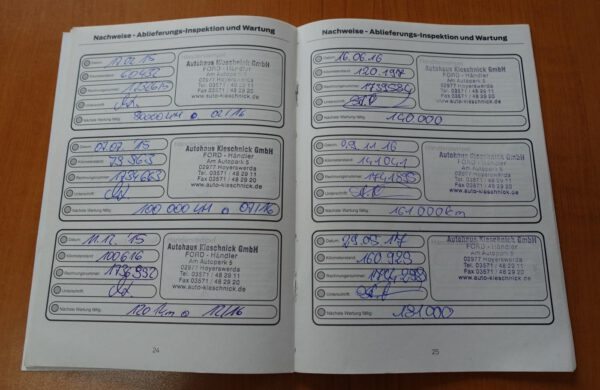 Nachweise - Ablieferungs-Inspektion und Wartung
Datum: 17.02.15
Kilometerstand: 60432
Rechnungsnummer:
Unterschrift:
Nächste Wartung fällig: 80000 KM o 02/16
Autohaus Kieschnick GmbH
FORD - Händler
Am Autopark 5
02977 Hoyerswerda
Tel. 03571 / 48 29 11
Fax 03571 / 48 29 20
www.auto-kieschnick.de
Datum: 07.07.15
Kilometerstand:
Rechnungsnummer: 1734663
Unterschrift:
Nächste Wartung fällig: 100 000 KM o 07/16
Autohaus Kieschnick GmbH
FORD - Händler
Am Autopark 5
02977 Hoyerswerda
Tel. 03571 / 48 29 11
Fax 03571 / 48 29 20
www.auto-kieschnick.de
Datum: 11.12.15
Kilometerstand: 100616
Rechnungsnummer: 1736932
Unterschrift:
Nächste Wartung fällig: 120 km o 12/16
Autohaus Kieschnick GmbH
FORD - Händler
Am Autopark 5
02977 Hoyerswerda
Tel. 03571 / 48 29 11
Fax 03571 / 48 29 20
www.auto-kieschnick.de
24
Nachweise - Ablieferungs-Inspektion und Wartung
Datum: 16.06.16
Kilometerstand: 120.197
Rechnungsnummer:
Unterschrift:
Nächste Wartung fällig: 140 000
Autohaus Kieschnick GmbH
FORD - Händler
Am Autopark 5
02977 Hoyerswerda
Tel. 03571 / 48 29 11
Fax 03571 / 48 29 20
www.auto-kieschnick.de
Datum: 09.11.16
Kilometerstand: 141041
Rechnungsnummer:
Unterschrift:
Nächste Wartung fällig: 161 000km
Autohaus Kieschnick GmbH
FORD - Händler
Am Autopark 5
02977 Hoyerswerda
Tel. 03571 / 48 29 11
Fax 03571 / 48 29 20
www.auto-kieschnick.de
Datum: 29.05.17
Kilometerstand: 160928
Rechnungsnummer: 1744298
Unterschrift:
Nächste Wartung fällig: 181000
Autohaus Kieschnick GmbH
FORD - Händler
Am Autopark 5
02977 Hoyerswerda
Tel. 03571 / 48 29 11
Fax 03571 / 48 29 20
www.auto-kieschnick.de
25